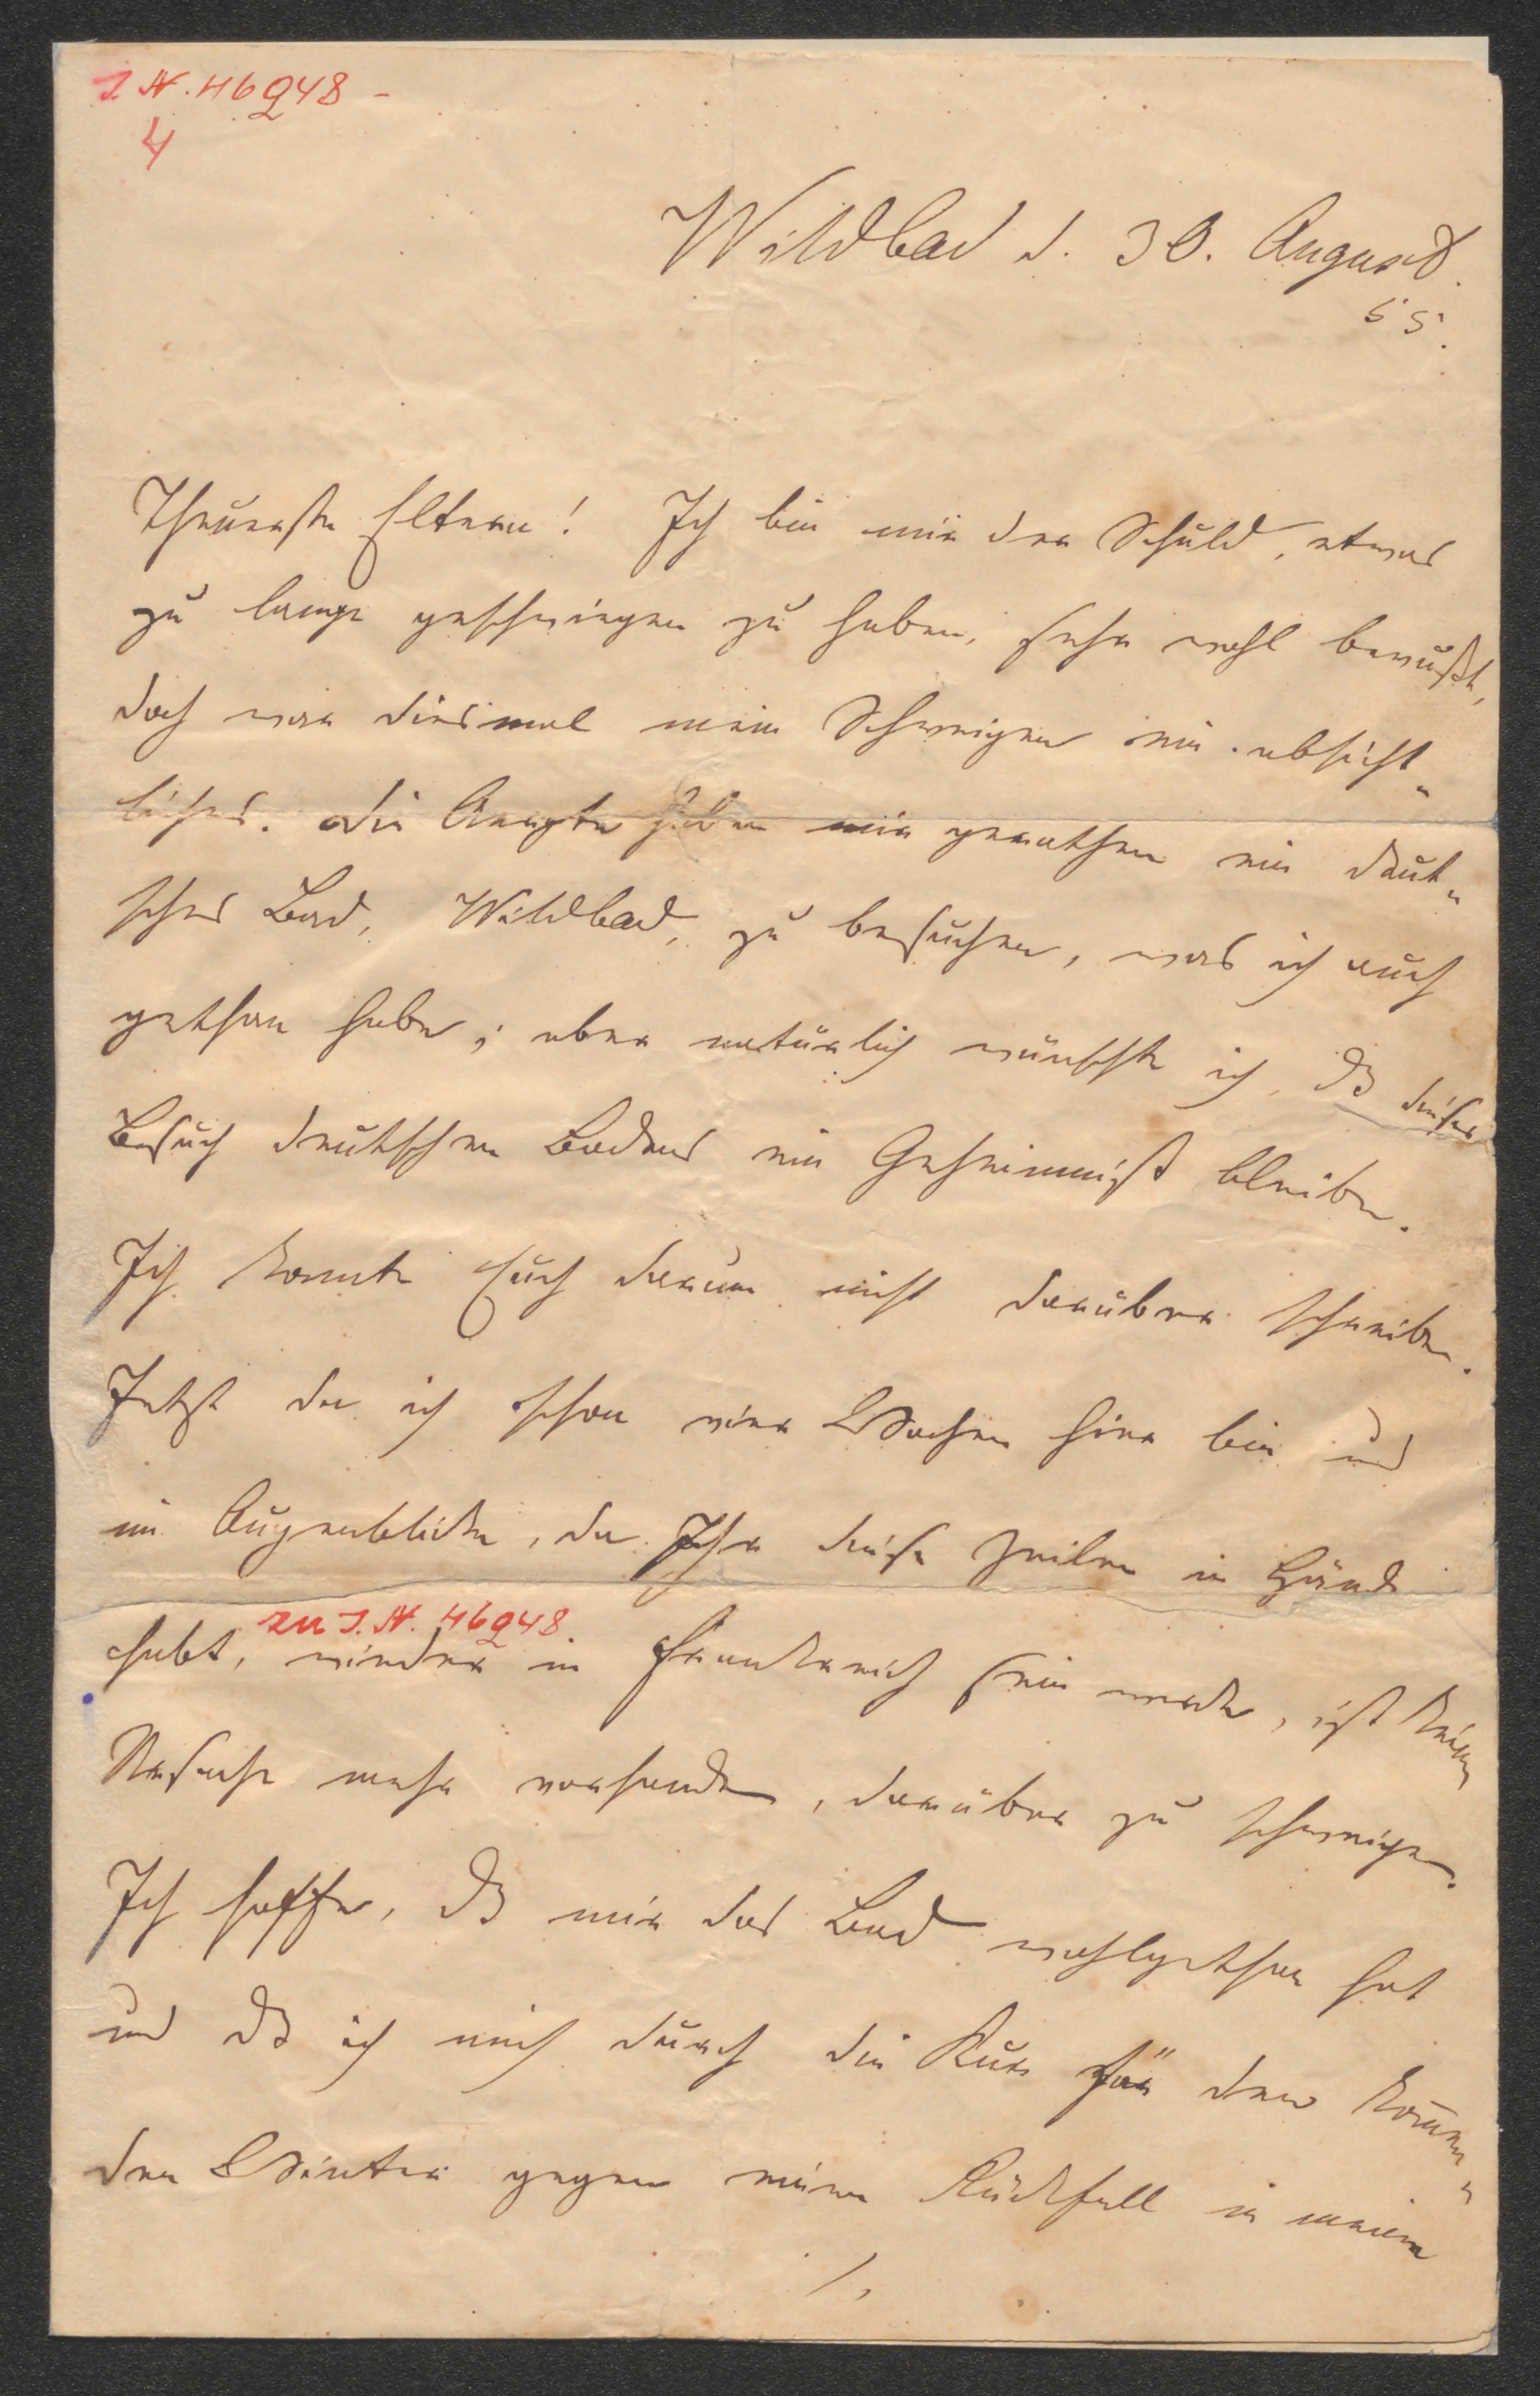 I. N. 46248 -
4
Wildbad d. 30. August.
55.
Theuerste Eltern! Ich bin mir der Schuld, etwas
zu lange geschwiegen zu haben, sehr wohl bewußt,
doch war diesmal mein Schweigen ein absicht„
liches. Die Aerzte haben mir gerathen ein deut„
sches Bad, Wildbad, zu besuchen, was ich auch
gethan habe; aber natürlich wünschte ich, dß dieser
Besuch deutschen Bodens ein Geheimniß bleibe.
Ich konnte Euch darum nicht darüber schreiben.
Jetzt da ich schon vier Wochen hier bin und
im Augenblicke, da Ihr diese Zeilen in Händen
zu I. N. 46248
habt, wieder in Frankreich sein werde, ist keine
Ursache mehr vorhanden, darüber zu schweigen.
Ich hoffe, dß mir das Bad wohlgethan hat
und dß ich mich durch die Kur für den kom̄en„
den Winter gegen einen Rückfall in meine
/.